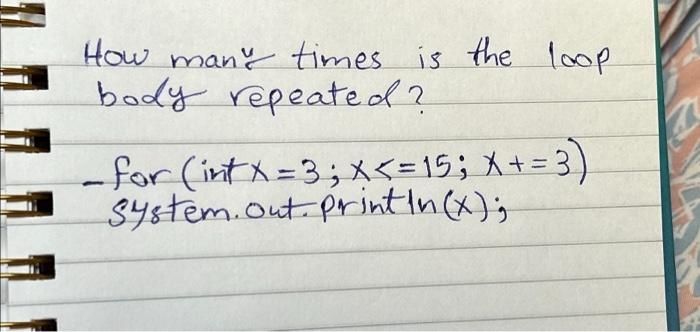 How many times is the loop
body repeated?
-for (int x = 3; x <= 15; x += 3)
system.out.println(x);